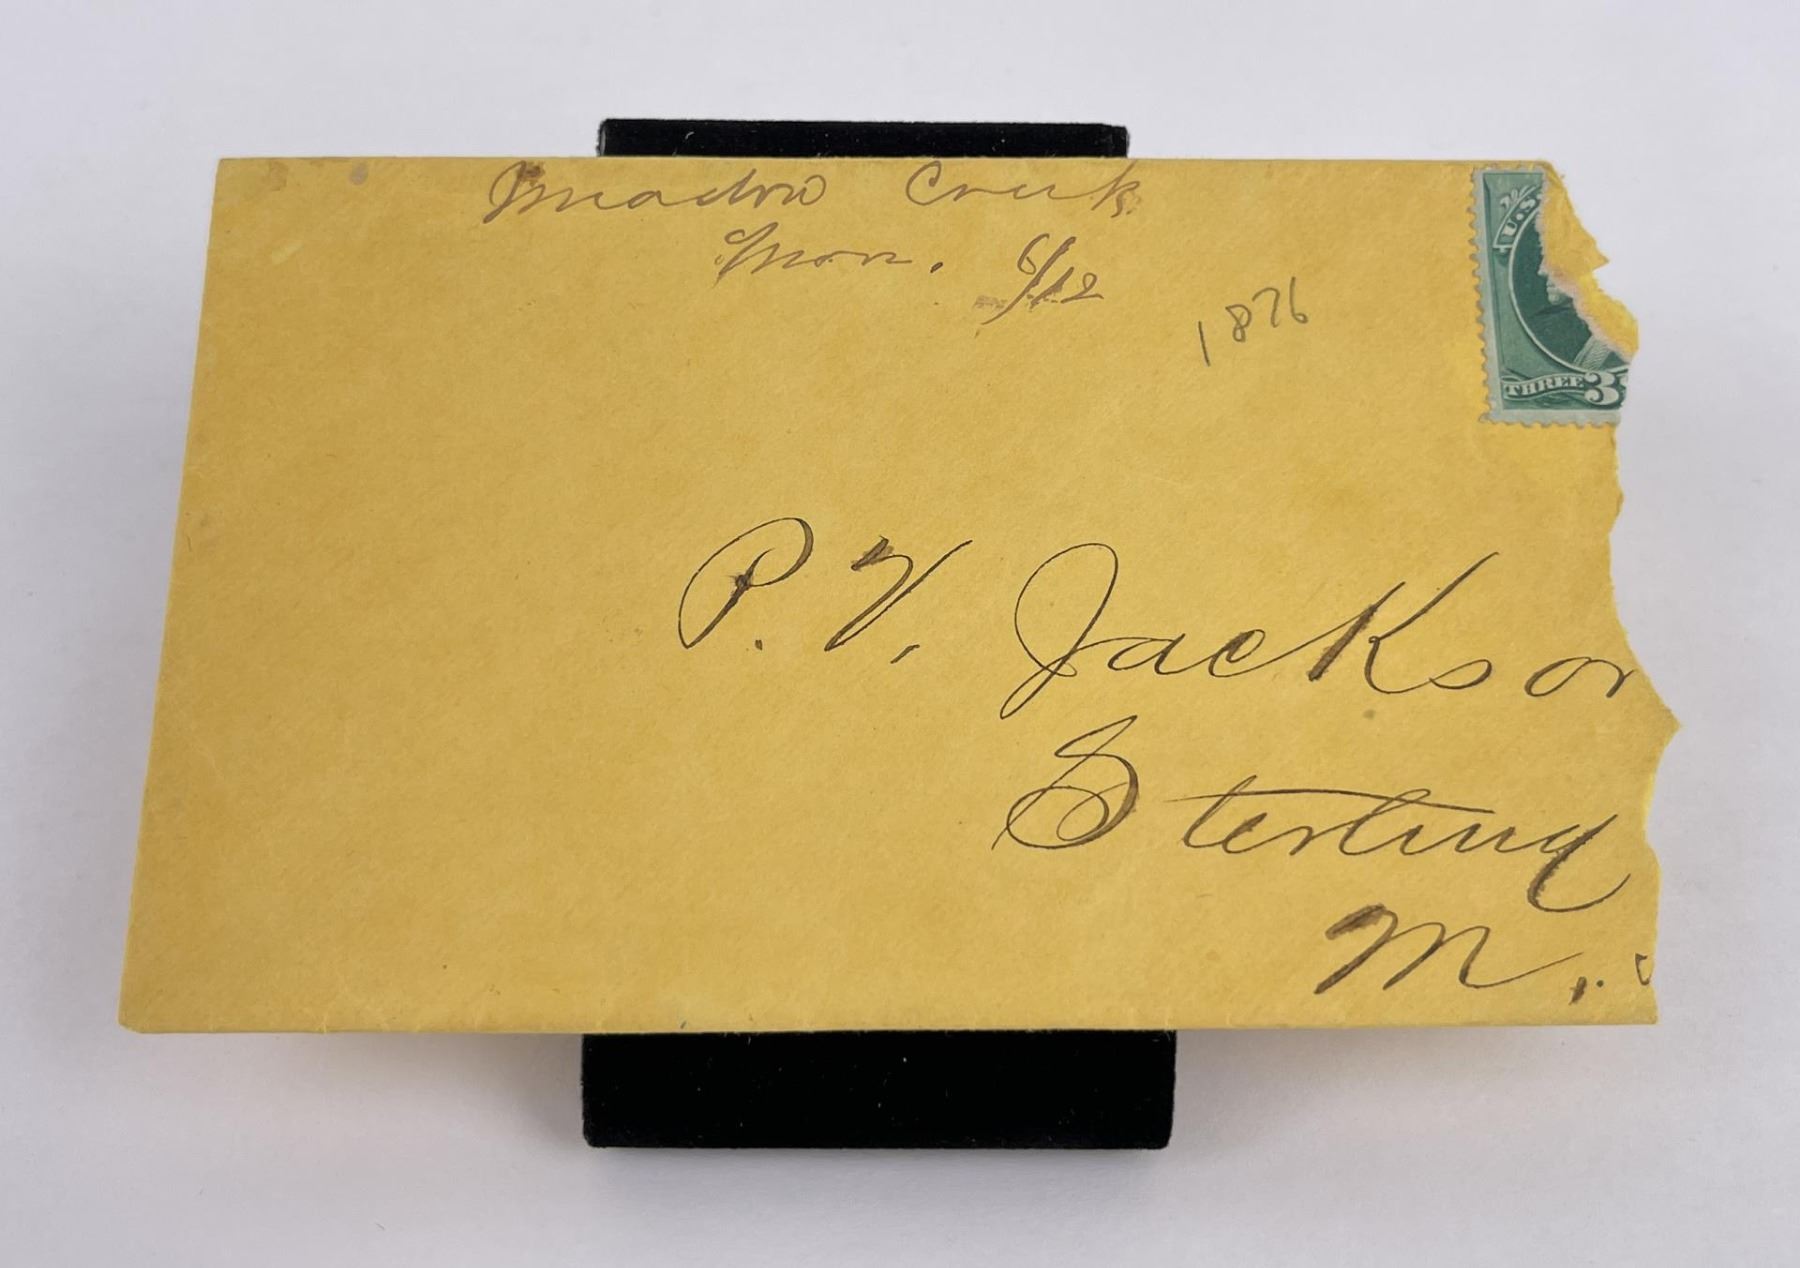 Meadow Creek
Mon. 6/12
1876
U.S.
THREE 3
P. V. Jackson
Sterling
M.